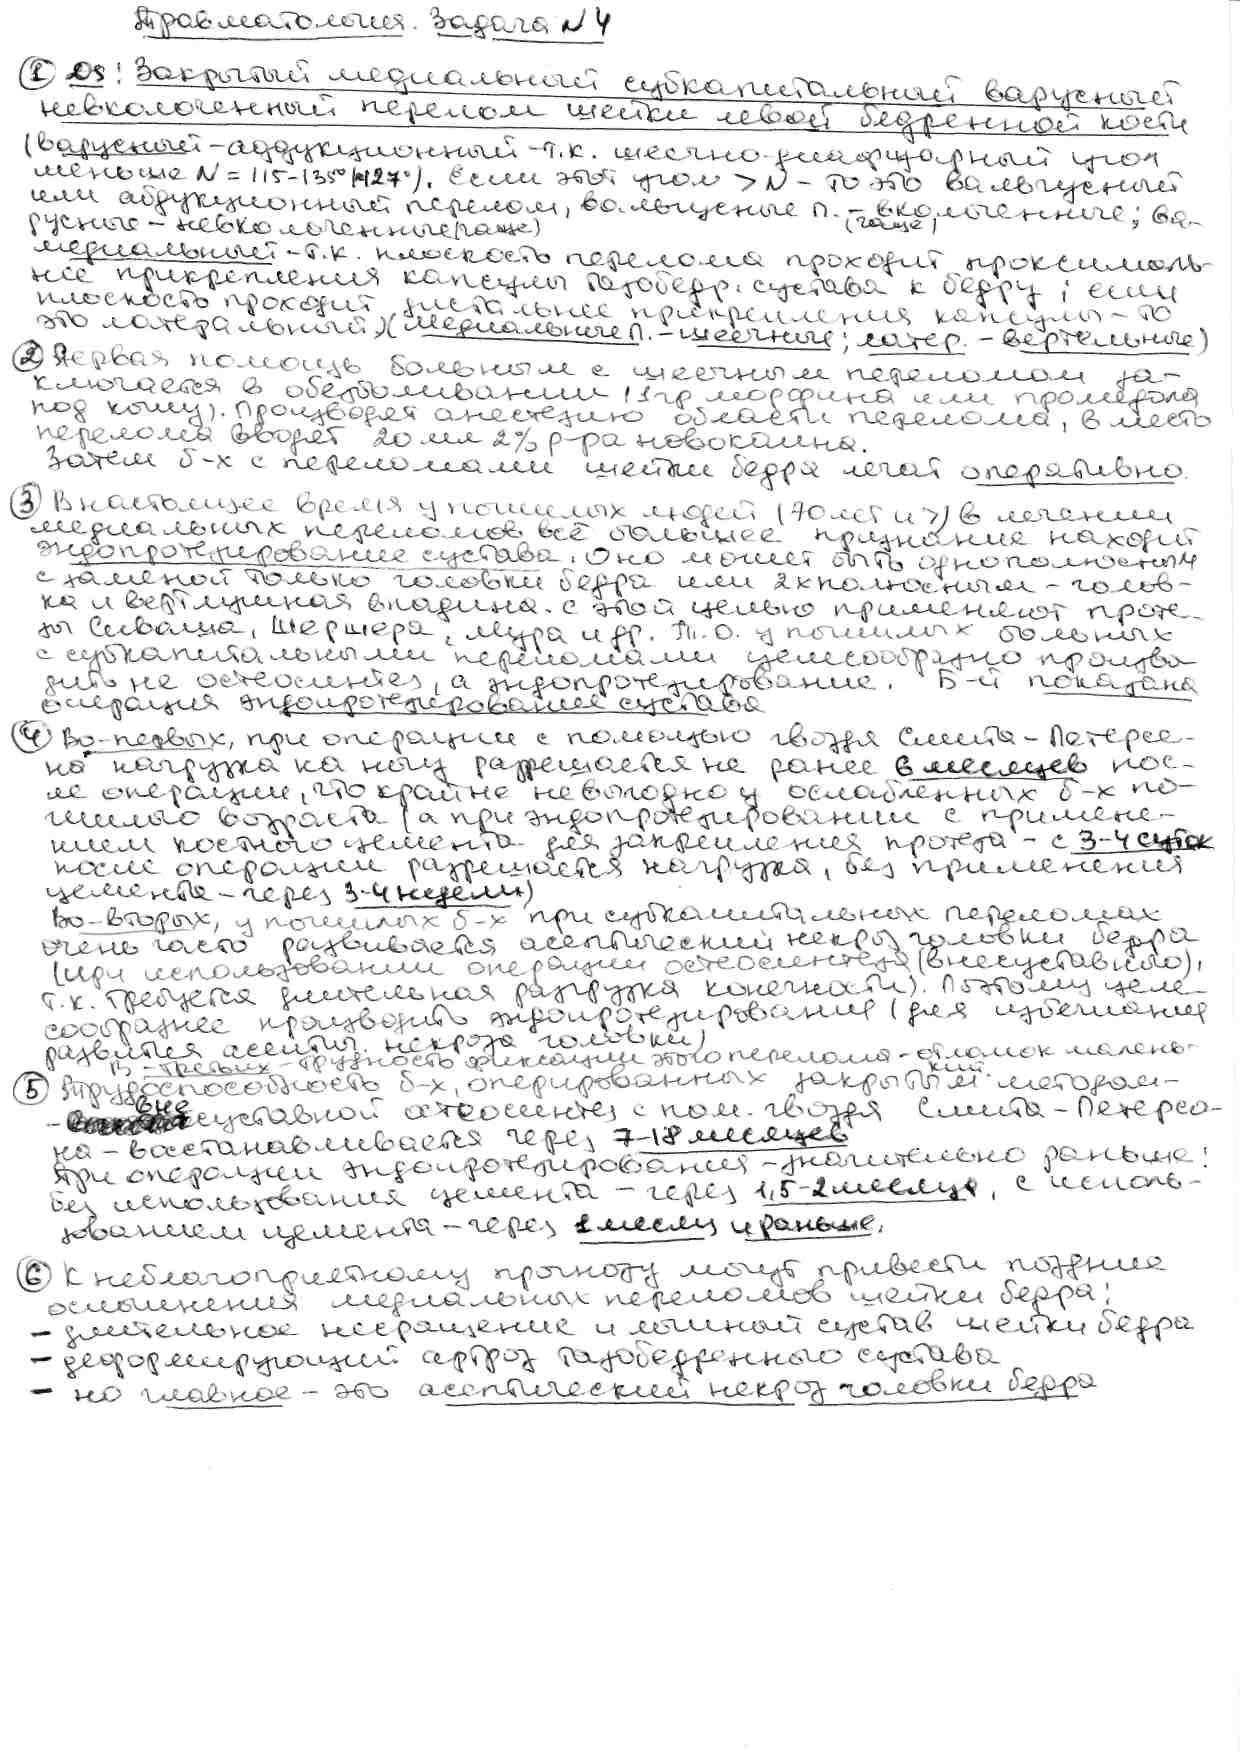 Травматология. Задача N 4
① Ds: Закрытый медиальный субкапитальный варусный
невколоченный перелом шейки левой бедренной кости
(варусный - аддукционный - т.к. шеечно-диафизарный угол
меньше N = 115-135° (127°). Если этот угол > N - то это вальгусный
или абдукционный перелом, вальгусные п. - вколоченные; ва-
(чаще)
русные - невколоченные (чаще)
медиальный - т.к. плоскость перелома проходит проксималь-
нее прикрепления капсулы тазобедр. сустава к бедру; если
плоскость проходит дистальнее прикрепления капсулы - то
это латеральный) (медиальные п. - шеечные; латер. - вертельные)
② Первая помощь больным с шеечным переломом за-
ключается в обезболивании (1 гр морфина или промедола
под кожу). Производят анестезию области перелома, в место
перелома вводят 20 мл 2% р-ра новокаина.
Затем б-х с переломами шейки бедра лечат оперативно.
③ В настоящее время у пожилых людей (70 лет и >) в лечении
медиальных переломов всё большее признание находит
эндопротезирование сустава. Оно может быть однополюсным
с заменой только головки бедра или 2хполюсным - голов-
ка и вертлужная впадина. С этой целью применяют проте-
зы Сиваша, Шершера, Мура и др. Т.О. у пожилых больных
с субкапитальными переломами целесообразно произво-
дить не остеосинтез, а эндопротезирование. Б-й показана
операция эндопротезирование сустава
④ Во-первых, при операции с помощью гвоздя Смита-Петерсе-
на нагрузка на ногу разрешается не ранее 6 месяцев пос-
ле операции, что крайне невыгодно у ослабленных б-х по-
жилого возраста (а при эндопротезировании с примене-
нием костного цемента для закрепления протеза - с 3-4 суток
после операции разрешается нагрузка, без применения
цемента - через 3-4 недели)
Во-вторых, у пожилых б-х при субкапитальных переломах
очень часто развивается асептический некроз головки бедра
(при использовании операции остеосинтеза (внесуставного),
т.к. требуется длительная разгрузка конечности). Поэтому целе-
сообразнее производить эндопротезирование (для избежания
развития асептич. некроза головки)
В-третьих - трудность фиксации этого перелома - отломок малень-
кий.
⑤ Трудоспособность б-х, оперированных закрытым методом -
- внесуставной остеосинтез с пом. гвоздя Смита-Петерсо-
на - восстанавливается через 7-18 месяцев
При операции эндопротезирования - значительно раньше:
без использования цемента - через 1,5-2 месяца, с исполь-
зованием цемента - через 1 месяц и раньше.
⑥ К неблагоприятному прогнозу могут привести поздние
осложнения медиальных переломов шейки бедра:
- длительное несращение и ложный сустав шейки бедра
- деформирующий артроз тазобедренного сустава
- но главное - это асептический некроз головки бедра